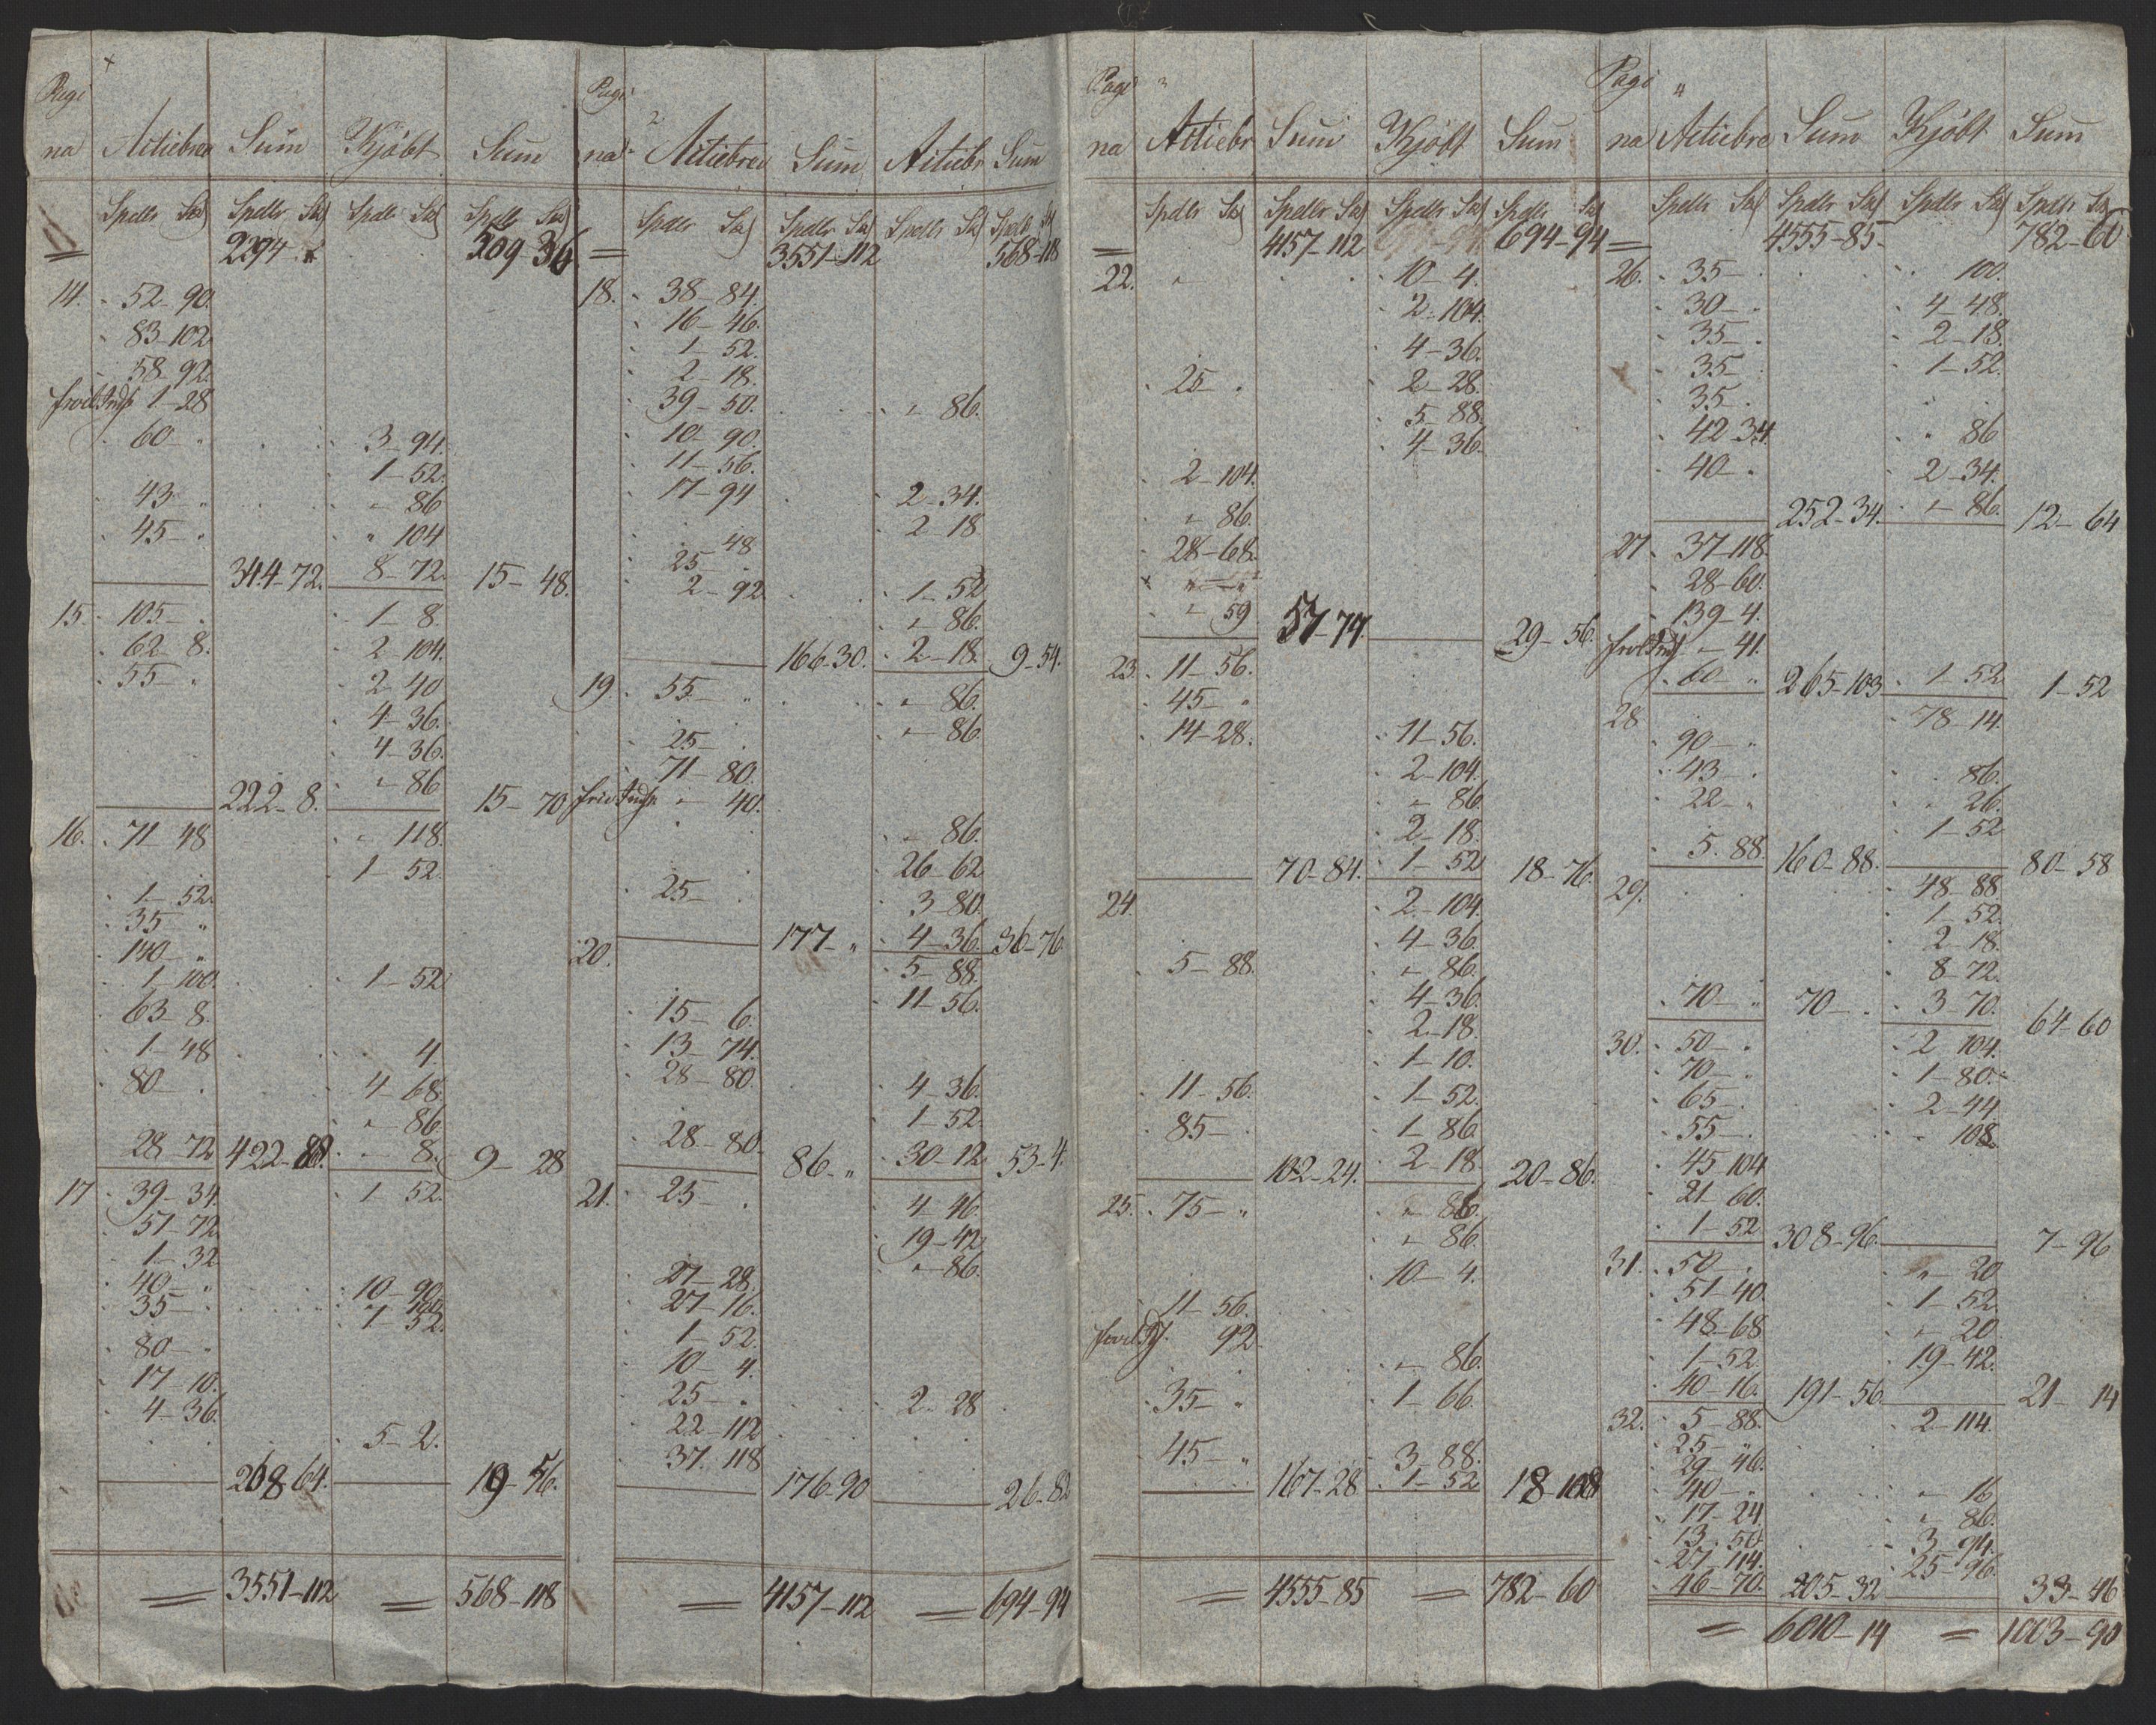 Pagi
na Actiebrev Sum Kjöbt Sum
Spdlr Sk Spdlr Sk Spdlr Sk Spdlr Sk
= 2294 - " 509-36
14. 52-90.
83-102
58-92.
1-28
60- " 3-94.
1-52.
43- " " 86
45- " " 104
344-72. 8-72. 15-48.
15. 105- . 1-8.
62-8. 2-104.
55- " 2-40
4-36.
4-36.
222-8. "-86 15-70
16. 71-48 " 118.
1-52.
1-52.
35 "
140- "
1-100. 1-52
63-8.
1-48 4
80- . 4-68.
"-86.
28-72 422-88. "-8. 9-28
17 39-34. 1-52.
51-72
1-32
40- " 10-90
35- . 1-52.
80- "
17-10.
4-36.
5-2.
268-64. 19-56.
= 3551-112 = 568-118
Pagi 2
na Actiebrev Sum Actiebr Sum
Spdlr Sk Spdlr Sk Spdlr Sk Spdlr Sk
= 3551-112 568-118
18. 38-84.
16-46.
1-52.
2-18.
39-50. "-86.
10-90.
11-56.
17-94 2-34.
2-18
48
25- .
2-92. 1-52
"-86.
166-30. 2-18. 9-54.
19 55- " "-86.
"-86.
25- .
71-80.
"-40.
"-86.
26-62
25- . 3-80.
177- " 4-36. 36-76
20. 5-88.
11-56.
15-6.
13-74.
28-80. 4-36.
1-52.
28-80. 86- " 30-12 53-4.
21. 25- . 4-46.
19-42
"-86.
27-28.
27-16.
1-52.
10-4.
25- . 2-28
22-112
37-118
176-90 26-82
= 4157-112 = 694-94
Pagi 3
na Actiebr Sum Kjöbt Sum
Spdlr Sk Spdlr Sk Spdlr Sk Spdlr Sk
= 4157-112 694-94
22. " 10-4.
2-104.
4-36.
25- . 2-28.
5-88.
4-36.
2-104.
"-86.
28-68.
"-59
57-77. 29-56.
23. 11-56.
45- "
14-28. 11-56.
2-104.
"-86
2-18.
70-84. 1-52 18-76.
24. 2-104.
4-36.
5-88. "-86.
4-36.
2-18.
1-10.
11-56. 1-52.
85- . 1-86
102-24. 2-18 20-86.
25. 75- " "-86.
"-86.
10-4.
11-56.
92.
"-86.
35- " 1-66.
45- " 3-88.
167-28 1-52 18-108
= 4555-85 = 782-60
Pagi "
na Actiebre Sum Kjöbt Sum
Spdlr Sk Spdlr Sk Spdlr Sk Spdlr Sk
= 4555-85 782-60
26. 35- 100.
30- . 4-48.
35- . 2-18.
35- 1-52.
35- .
42-34. " 86
40- . 2-34.
252-34. "-86. 12-64
27. 37-118.
28-60.
139-4.
"-41.
60- " 265-103 1-52 1-52
28 78-14.
90- "
43- . 86.
22- " " 26.
1-52
5-88. 160-88. 80-58
29. 48-88
1-52.
2-18.
8-72.
70- " 70- . 3-70. 64-60
30. 50- . 2-104.
70- . 1-80.
65- . 2-44
55- . 108.
45-104
21-60.
1-52 308-96. 7-96
31. 50- . "-20
51-40. 1-52
48-68 "-20
1-52. 19-42.
40-16. 191-56. 21-14
32. 5-88. 2-114.
25- "
29-46.
40- " "-16
17-24. "-86.
13-50 3-94.
27-114. 25-96.
46-70. 205-32 33-46
= 6010-14 = 1003-90